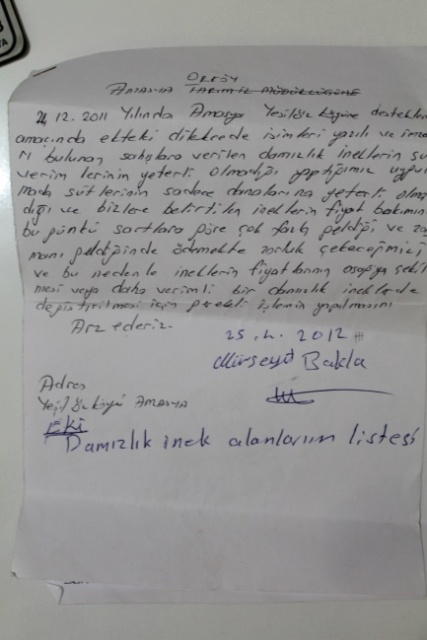 ORKÖY
AMASYA TARIM İL MÜDÜRLÜĞÜNE
24.12.2011 Yılında Amasya Yeşilöz köyüne destekleme
amacında ekteki dilekçede isimleri yazılı ve imza
rı bulunan şahıslara verilen damızlık ineklerin süt
verim lerinin yeterli olmadığı yaptığımız uygul
mada sütlerinin sadece danalarına yeterli olma
dığı ve bizlere belirtilen ineklerin fiyat bakımın
bu günkü şartlara göre çok fazla geldiği ve za
manı geldiğinde ödemekte zorluk çekeceğimizi
ve bu nedenle ineklerin fiyatlarının aşağıya çekil
mesi veya daha verimli bir damızlık ineklerle
değiştirilmesi için gerekli işlemin yapılmasını
Arz ederiz.
25.2.2012
Mürseyit Bakla
Adres
Yeşilöz köyü AMASYA
EKİ
Damızlık inek alanların listesi